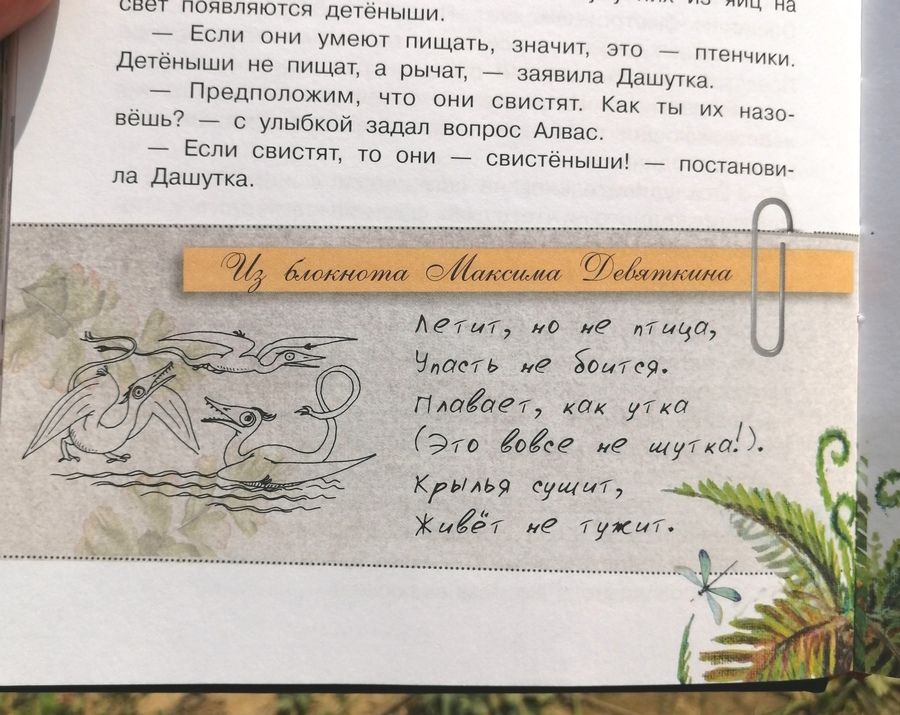 свет появляются детёныши.
— Если они умеют пищать, значит, это — птенчики.
Детёныши не пищат, а рычат, — заявила Дашутка.
— Предположим, что они свистят. Как ты их назо-
вёшь? — с улыбкой задал вопрос Алвас.
— Если свистят, то они — свистёныши! — постанови-
ла Дашутка.
Из блокнота Максима Девяткина
Летит, но не птица,
Упасть не боится.
Плавает, как утка
(Это вовсе не шутка!).
Крылья сушит,
Живёт не тужит.